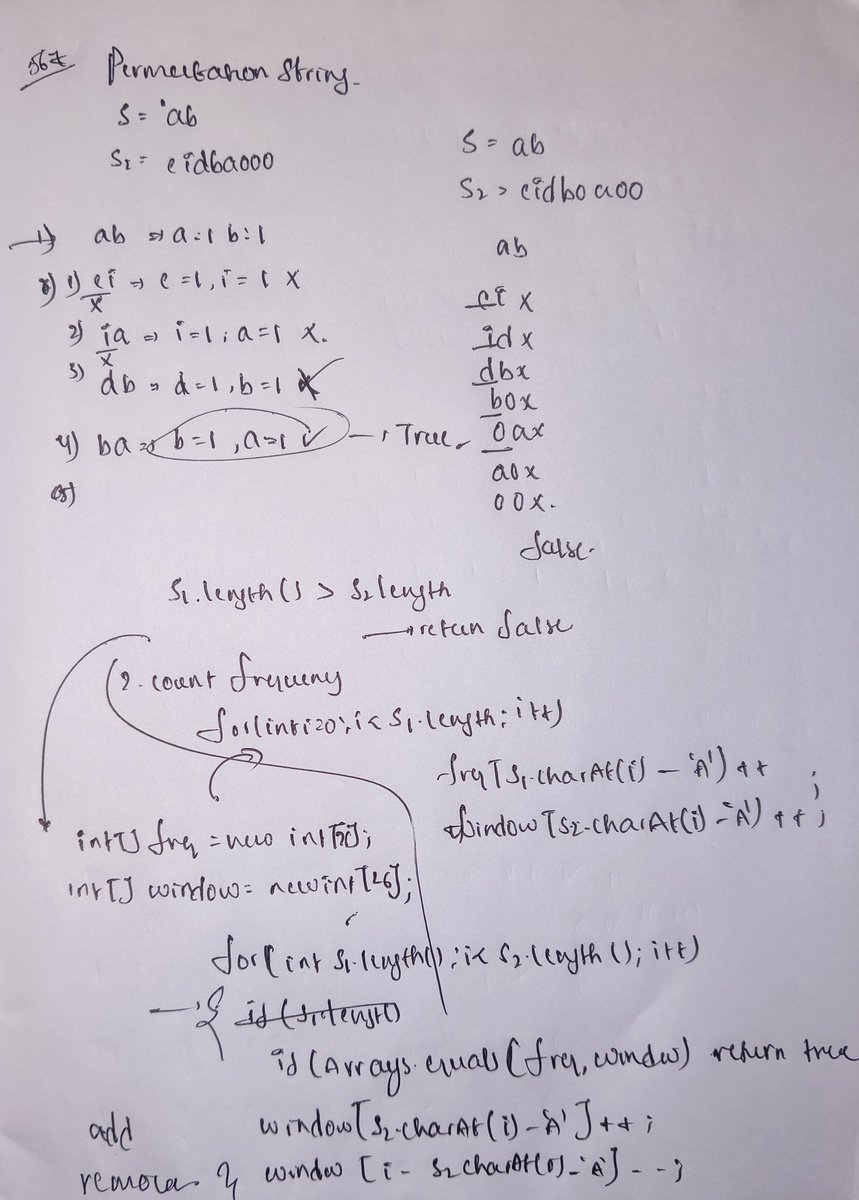 567 Permutation String
S = 'ab
S2 = eidbaooo
S = ab
S2 > eidboaoo
1) ab => a:1 b:1
2) 1) ei => e=1, i=1 X
X
2) ia => i=1; a=1 X.
X
3) db => d=1, b=1 X
4) ba => b=1, a=1 ✓ → True
5)
ab
ei x
id x
db x
bo x
oa x
ao x
oo x.
false.
S1.length() > S2 length
→ return false
2. count frequency
for(int i=0; i< S1.length; i++)
frq[S1.charAt(i) - 'A') ++ ;
window [S2.charAt(i) - 'A') ++ ;
int[] freq = new int[26];
int[] window = new int[26];
for(int S1.length(); i< S2.length(); i++)
{ if (S1.length()
if (Arrays.equals(freq, window) return true
add window[S2.charAt(i) - 'A']++;
remove } window [i - S2 charAt(0) - 'A'] --;